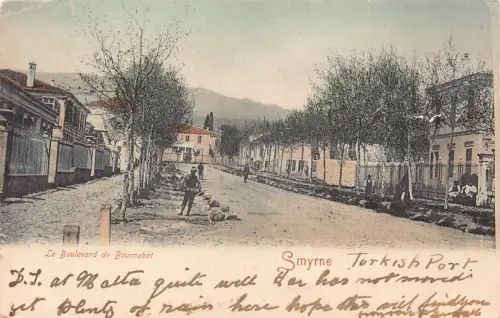 Le Boulevard de Bournabat
Smyrne Turkish Port
D.J. at Malta quite well Dar has not moved
yet plenty of rain here hope this will find you